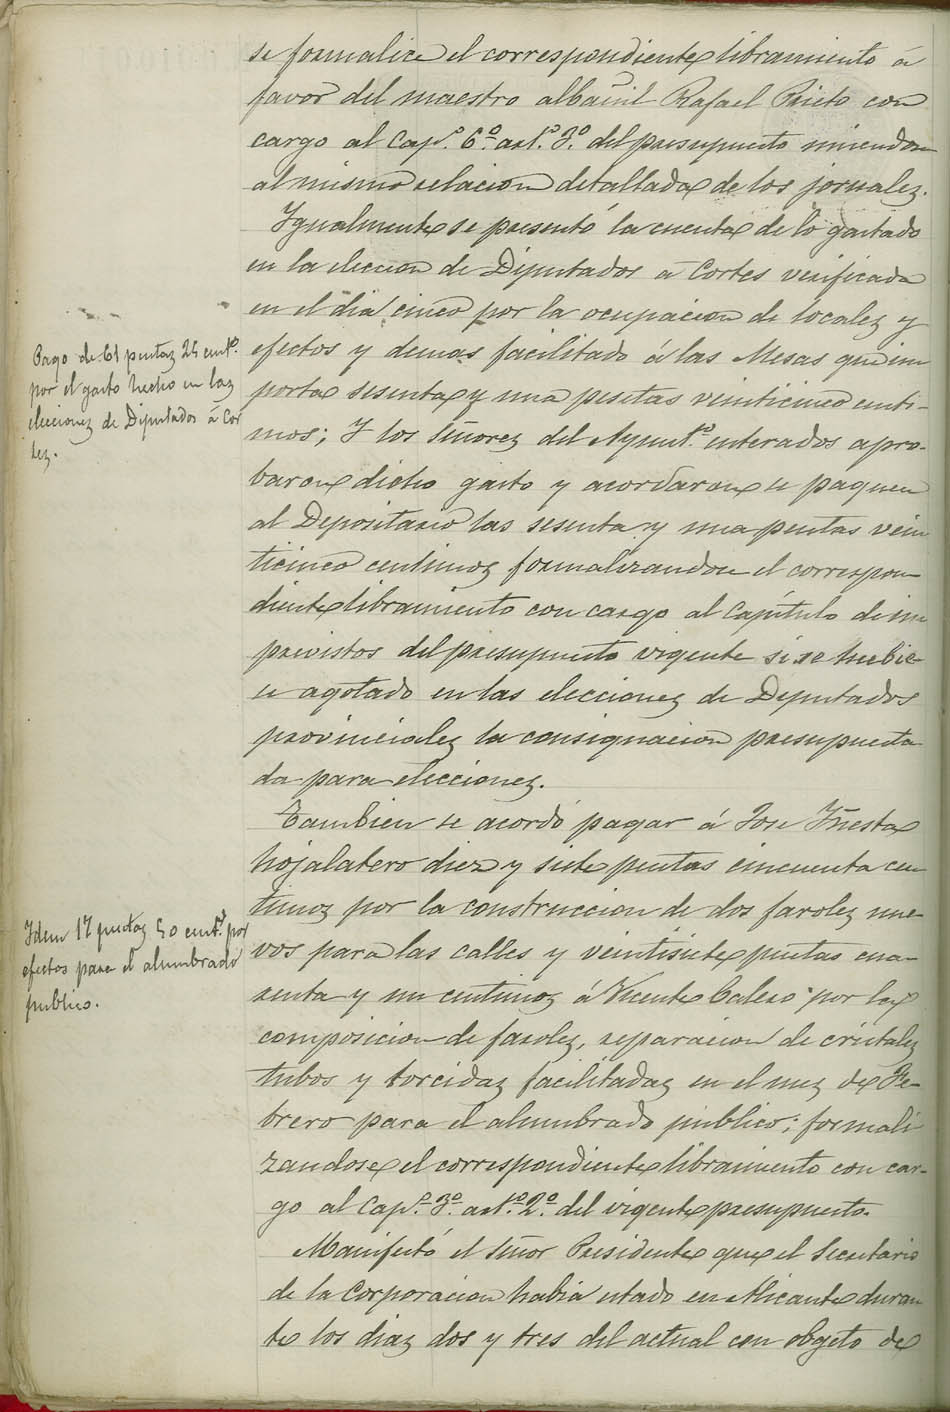 se formalice el correspondiente libramiento á
favor del maestro albañil Rafael Prieto con
cargo al Cap.º 6.º art.º 3.º del presupuesto uniendose
al mismo relacion detallada de los jornales.
Igualmente se presentó la cuenta de lo gastado
en la eleccion de Diputados á Cortes verificada
en el dia cinco por la ocupacion de locales y
efectos y demas facilitado á las Mesas que im
porta sesenta y una pesetas veinticinco centi-
mos; Y los Señores del Ayunt.º enterados apro-
baron dicho gasto y acordaron se paguen
al Depositario las sesenta y una pesetas vein
ticinco centimos formalizandose el correspon-
diente libramiento con cargo al Capítulo de im
previstos del presupuesto vigente si se hubie-
se agotado en las elecciones de Diputados
provinciales la consignacion presupuesta-
da para elecciones.
Tambien se acordó pagar á Jose Yñesta
hojalatero diez y siete pesetas cincuenta cen
timos por la construccion de dos faroles nue-
vos para las calles y veintisiete pesetas cua-
renta y un centimos á Vicente Calero por la
composicion de faroles, reparacion de cristales
tubos y torcidas facilitadas en el mes de Fe-
brero para el alumbrado publico; formali
zandose el correspondiente libramiento con car-
go al Cap.º 3.º art.º 2.º del vigente presupuesto.
Manifestó el Señor Presidente que el Secretario
de la Corporacion habia estado en Alicante duran
te los dias dos y tres del actual con objeto de
Pago de 61 pesetas 25 cent.s
por el gasto hecho en las
elecciones de Diputados á Cor
tes.
Idem 17 pesetas 50 cent.s por
efectos para el alumbrado
publico.